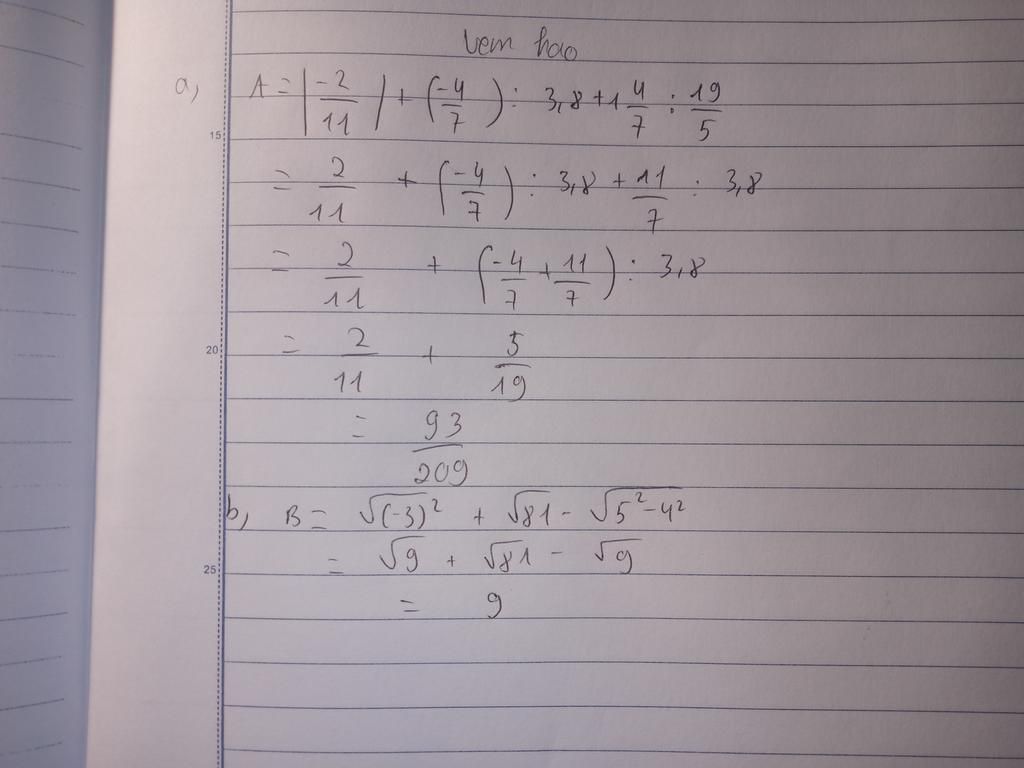 Vem hao
a, A = |-2/11| + (-4/7) : 3,8 + 1 4/7 : 19/5
15
= 2/11 + (-4/7) : 3,8 + 11/7 : 3,8
= 2/11 + (-4/7 + 11/7) : 3,8
20
= 2/11 + 5/19
= 93/209
b, B = √(-3)² + √81 - √5²-4²
= √9 + √81 - √9
25
= 9